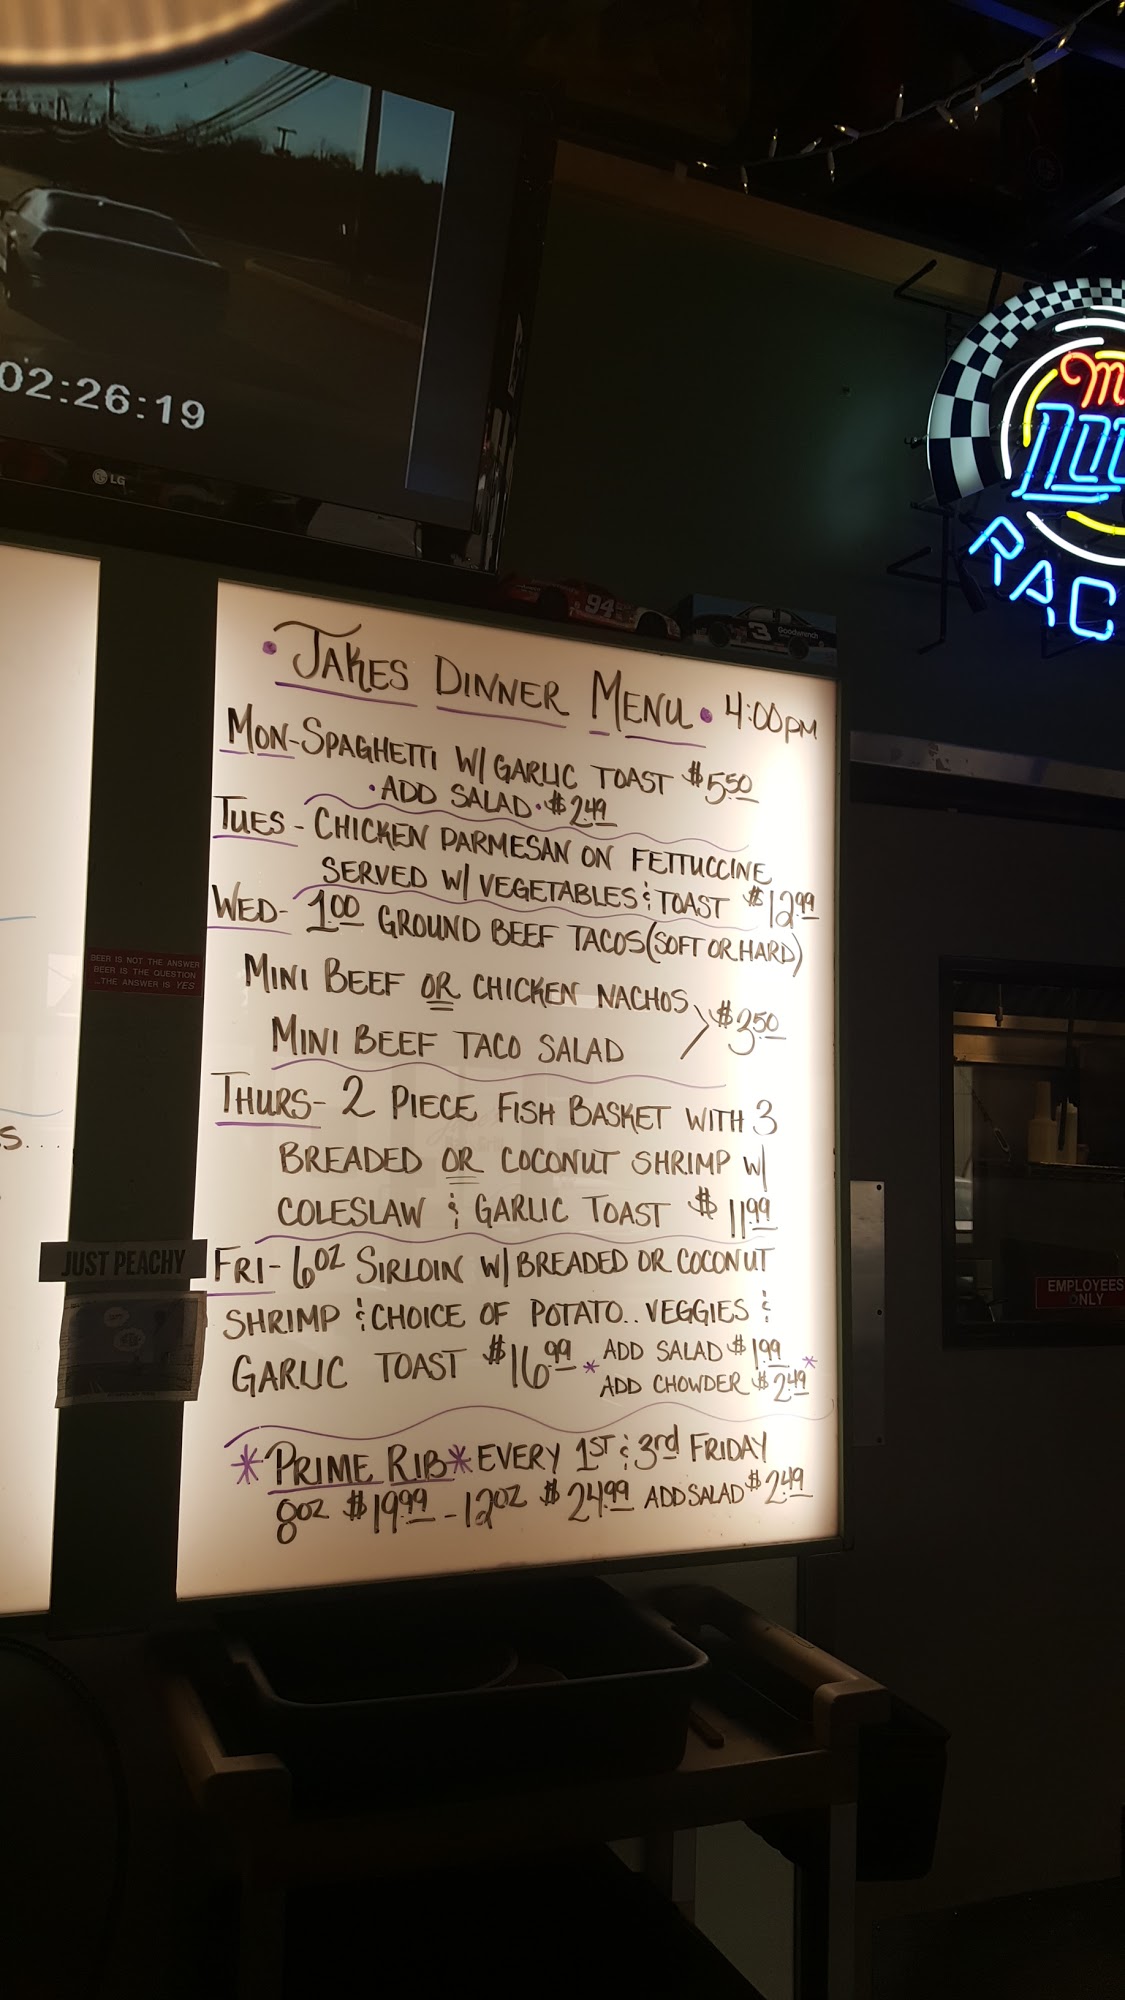 02:26:19
LG
94
3
Goodwrench
RAC
• JAKES DINNER MENU • 4:00PM
MON-SPAGHETTI W/ GARLIC TOAST $5.50
• ADD SALAD • $2.49
TUES - CHICKEN PARMESAN ON FETTUCCINE
SERVED W/ VEGETABLES & TOAST $12.99
WED- 1.00 GROUND BEEF TACOS (SOFT OR HARD)
MINI BEEF OR CHICKEN NACHOS
$3.50
MINI BEEF TACO SALAD
THURS- 2 PIECE FISH BASKET WITH 3
BREADED OR COCONUT SHRIMP W/
COLESLAW & GARLIC TOAST $11.99
FRI- 6OZ SIRLOIN W/ BREADED OR COCONUT
SHRIMP & CHOICE OF POTATO.. VEGGIES &
GARLIC TOAST $16.99 * ADD SALAD $1.99 *
ADD CHOWDER $2.49
*PRIME RIB* EVERY 1ST & 3rd FRIDAY
8OZ $19.99 - 12OZ $24.99 ADD SALAD $2.49
BEER IS NOT THE ANSWER
BEER IS THE QUESTION
...THE ANSWER IS YES
S....
JUST PEACHY
EMPLOYEES
ONLY